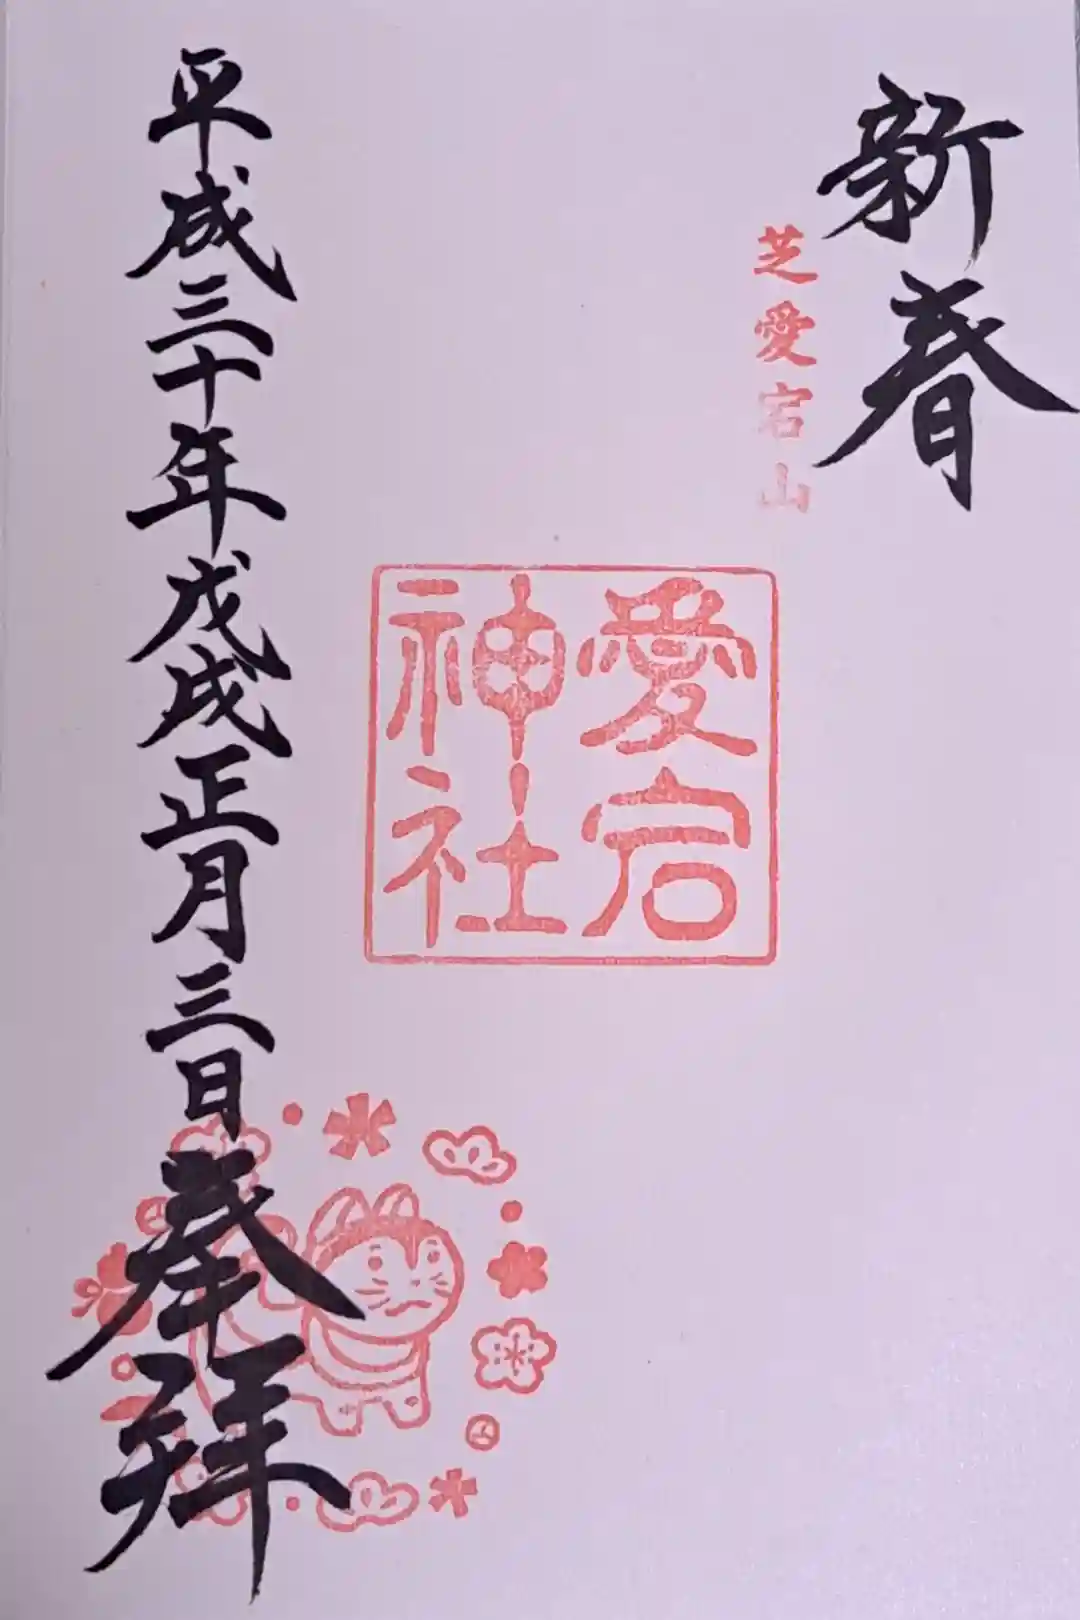 新春
芝愛宕山
愛宕
神社
平成三十年戊戌正月三日奉拝